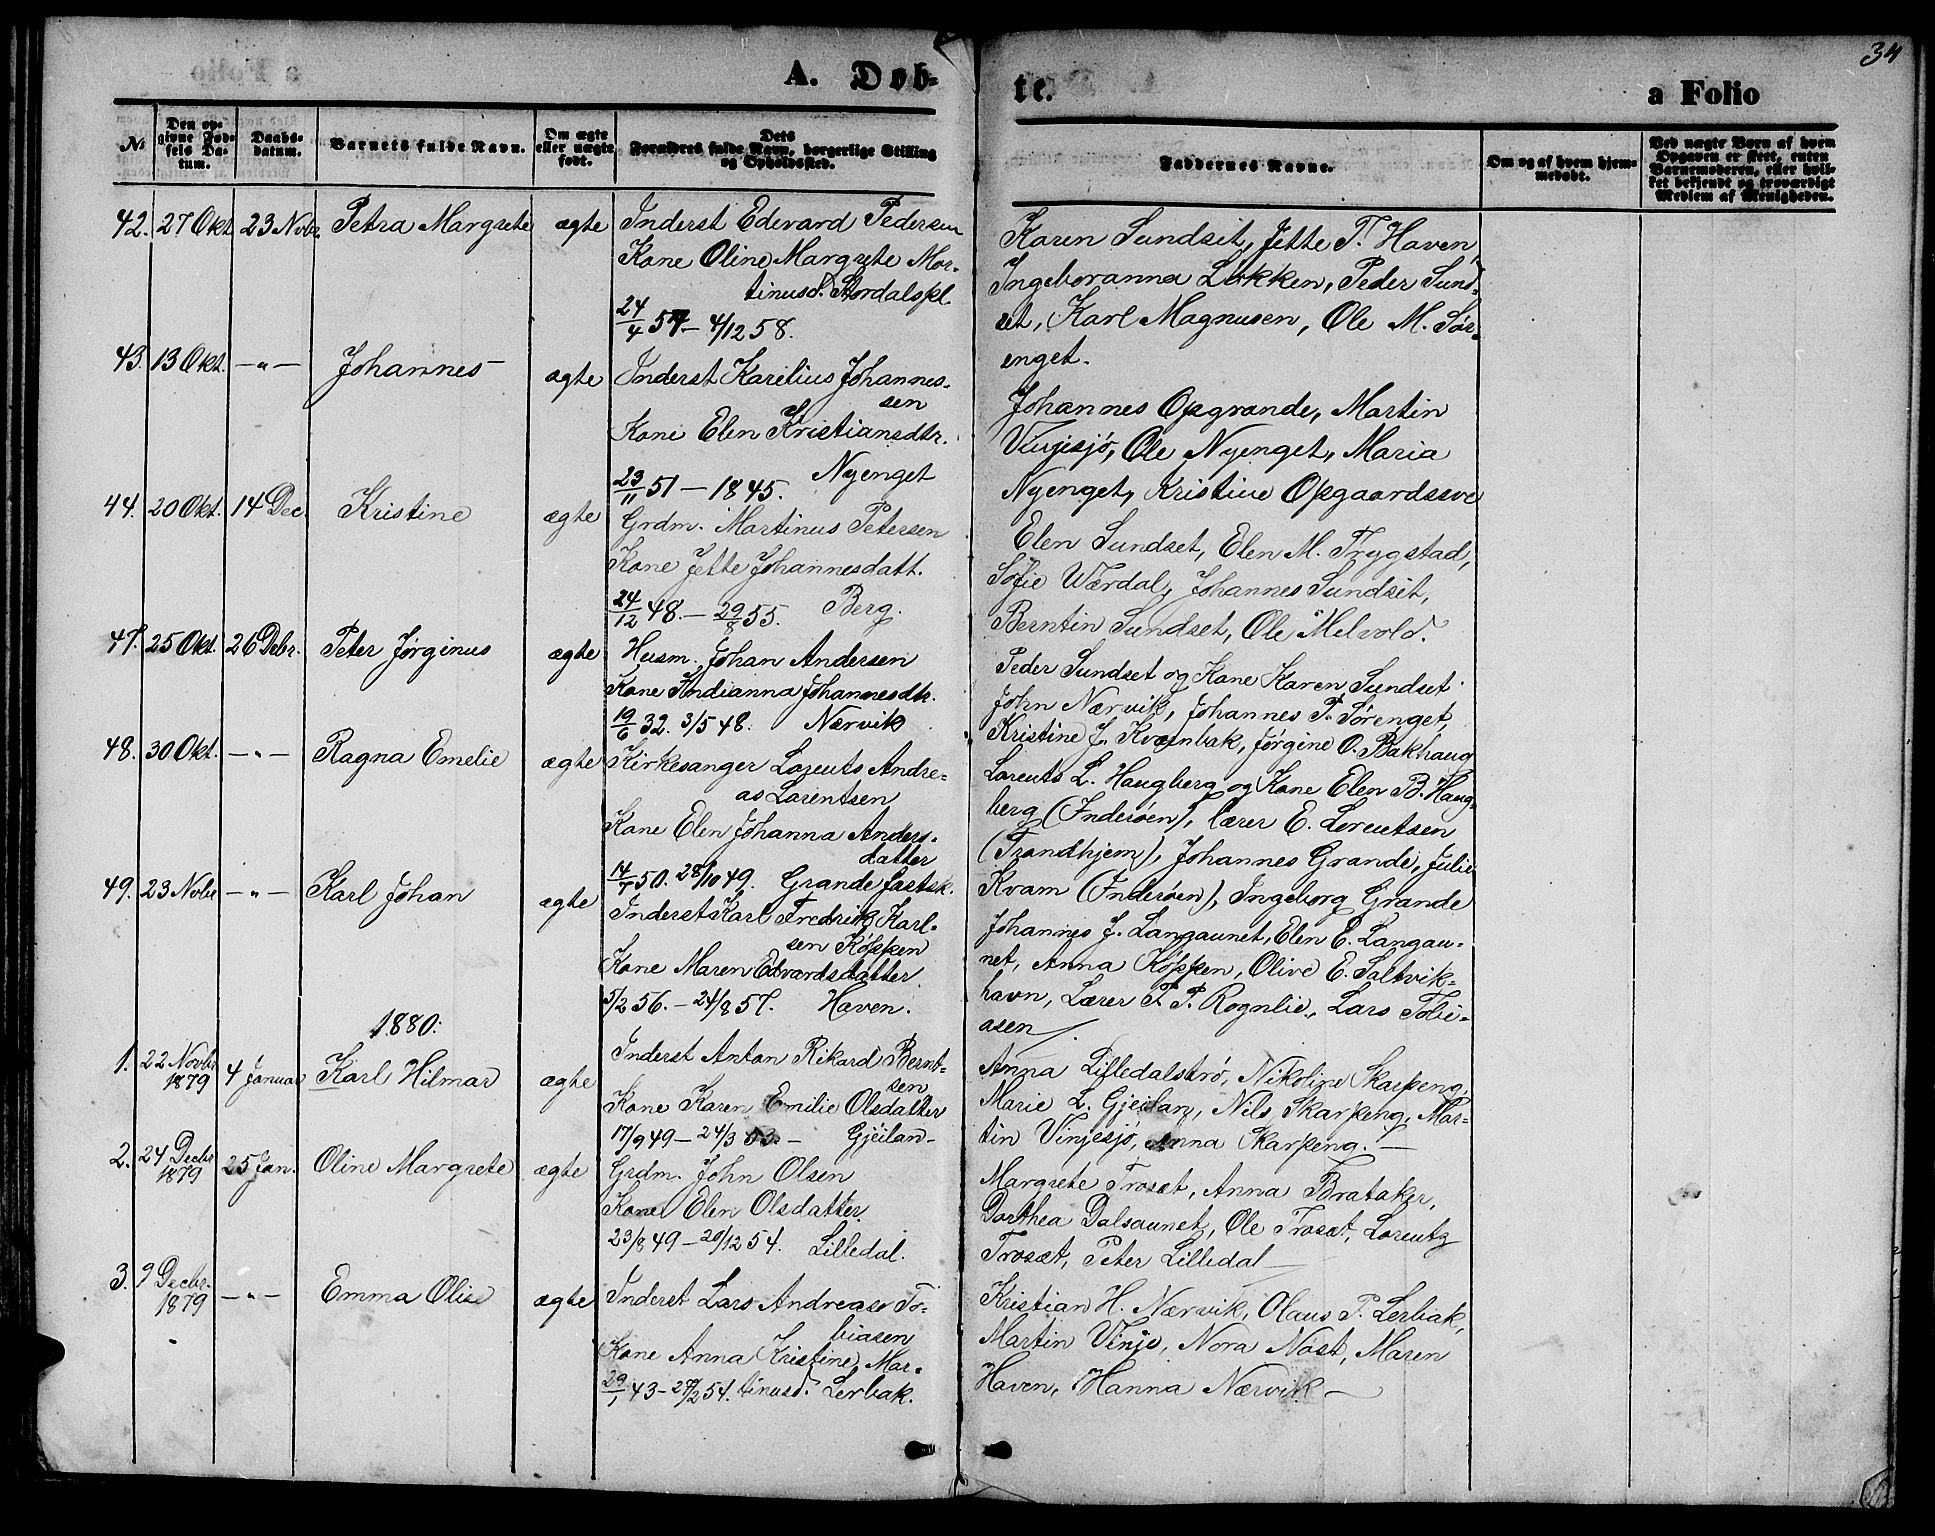 34
A. Døb-
te.
a Folio
№
Den op-
givne Fød-
sels Da-
tum.
Daabs-
datum.
Barnets fulde Navn.
Om ægte
eller uægte
født.
Dets
Forældres fulde Navn, borgerlige Stilling
og Opholdssted.
Faddernes Navne.
Om og af hvem hjem-
medøbt.
Ved uægte Børn af hvem
Opgaven er skeet, enten
Barnemoderen, eller hvil-
ket bekjendt og troværdigt
Medlem af Menigheden.
42. 27 Okt. 23 Novbr. Petra Margrete ægte Inderst Edevard Pedersen
Kone Oline Margrete Mor-
tinusd. Stordalspl.
24/4 54 - 4/12 58.
Karen Sundset, Jette T. Haven,
Ingeboranna Løkken, Peder Sund-
set, Karl Magnusen, Ole M. Sør-
enget.
43. 13 Okt. -"- Johannes ægte Inderst Karelius Johannes-
sen
Kone Elen Kristiansdtr.
Nyenget
23/11 51 - 1845.
Johannes Opgrande, Martin
Vinjesjø, Ole Nyenget, Maria
Nyenget, Kristine Opgaardssve
44. 20 Okt. 14 Dec. Kristine ægte Grdm. Martinus Petersen
Kone Jette Johannesdatt.
24/12 48. - 29/8 55. Berg.
Elen Sundset, Elen M. Trygstad,
Sofie Værdal, Johannes Sundset,
Berntin Sundset, Ole Melvold.
47. 25 Okt. 26 Debr. Peter Jørginus ægte Husm. Johan Andersen
Kone Andianna Johannesdtr.
19/6 32. 3/5 48. Nærvik
Peder Sundset og Kone Karen Sundset
John Nærvik, Johannes P. Sørenget,
Kristine J. Kværnbak, Jørgine O. Bakhaug
48. 30 Okt. -"- Ragna Emelie ægte Kirkesanger Lorents Andre-
as Lorentsen
Kone Elen Johanna Anders-
datter
14/7 50. 28/10 49. Grande fastsk.
Lorents L. Haugberg og Kone Elen B. Haug-
berg (Inderøen), lærer E. Lorentsen
(Trondhjem), Johannes Grande, Julie
Kvam (Inderøen), Ingeborg Grande
49. 23 Novbr -"- Karl Johan ægte Inderst Karl Fredrik Karl-
sen Køpken
Kone Maren Edvardsdatter
5/2 56. - 24/8 57. Haven.
Johannes J. Langaunet, Elen E. Langau-
net, Anna Køpken, Olive E. Saltvik-
havn, Lærer P. P. Rognlie, Lars Tobi-
asen
1880:
1. 22 Novbr
1879 4 Januar Karl Hilmar ægte Inderst Anton Rikard Bernt-
sen
Kone Karen Emilie Olsdatter
17/9 49 - 24/3 53. - Gjeilan-
Anna Lilledalstrø, Nikoline Skarpeng,
Marie L. Gjeilan, Nils Skarpeng, Mar-
tin Vinjesjø, Anna Skarpeng. -
2. 24 Decbr
1879 25 Jan. Oline Margrete ægte Grdm. John Olsen
Kone Elen Olsdatter
23/8 49 - 20/12 54. Lilledal.
Margrete Trosæt, Anna Brataker,
Dorthea Dalsaunet, Ole Trosæt, Lorentz
Trosæt, Peter Lilledal
3. 9 Decbr.
1879 -"- Emma Olise ægte Inderst Lars Andreas To-
biasen
Kone Anna Kristine Mar-
29/1 43 - 27/2 54. tinusd. Lerbak.
Kristian H. Nærvik, Olaus P. Lerbak,
Martin Vinje, Nora Nøst, Maren
Haven, Hanna Nærvik -